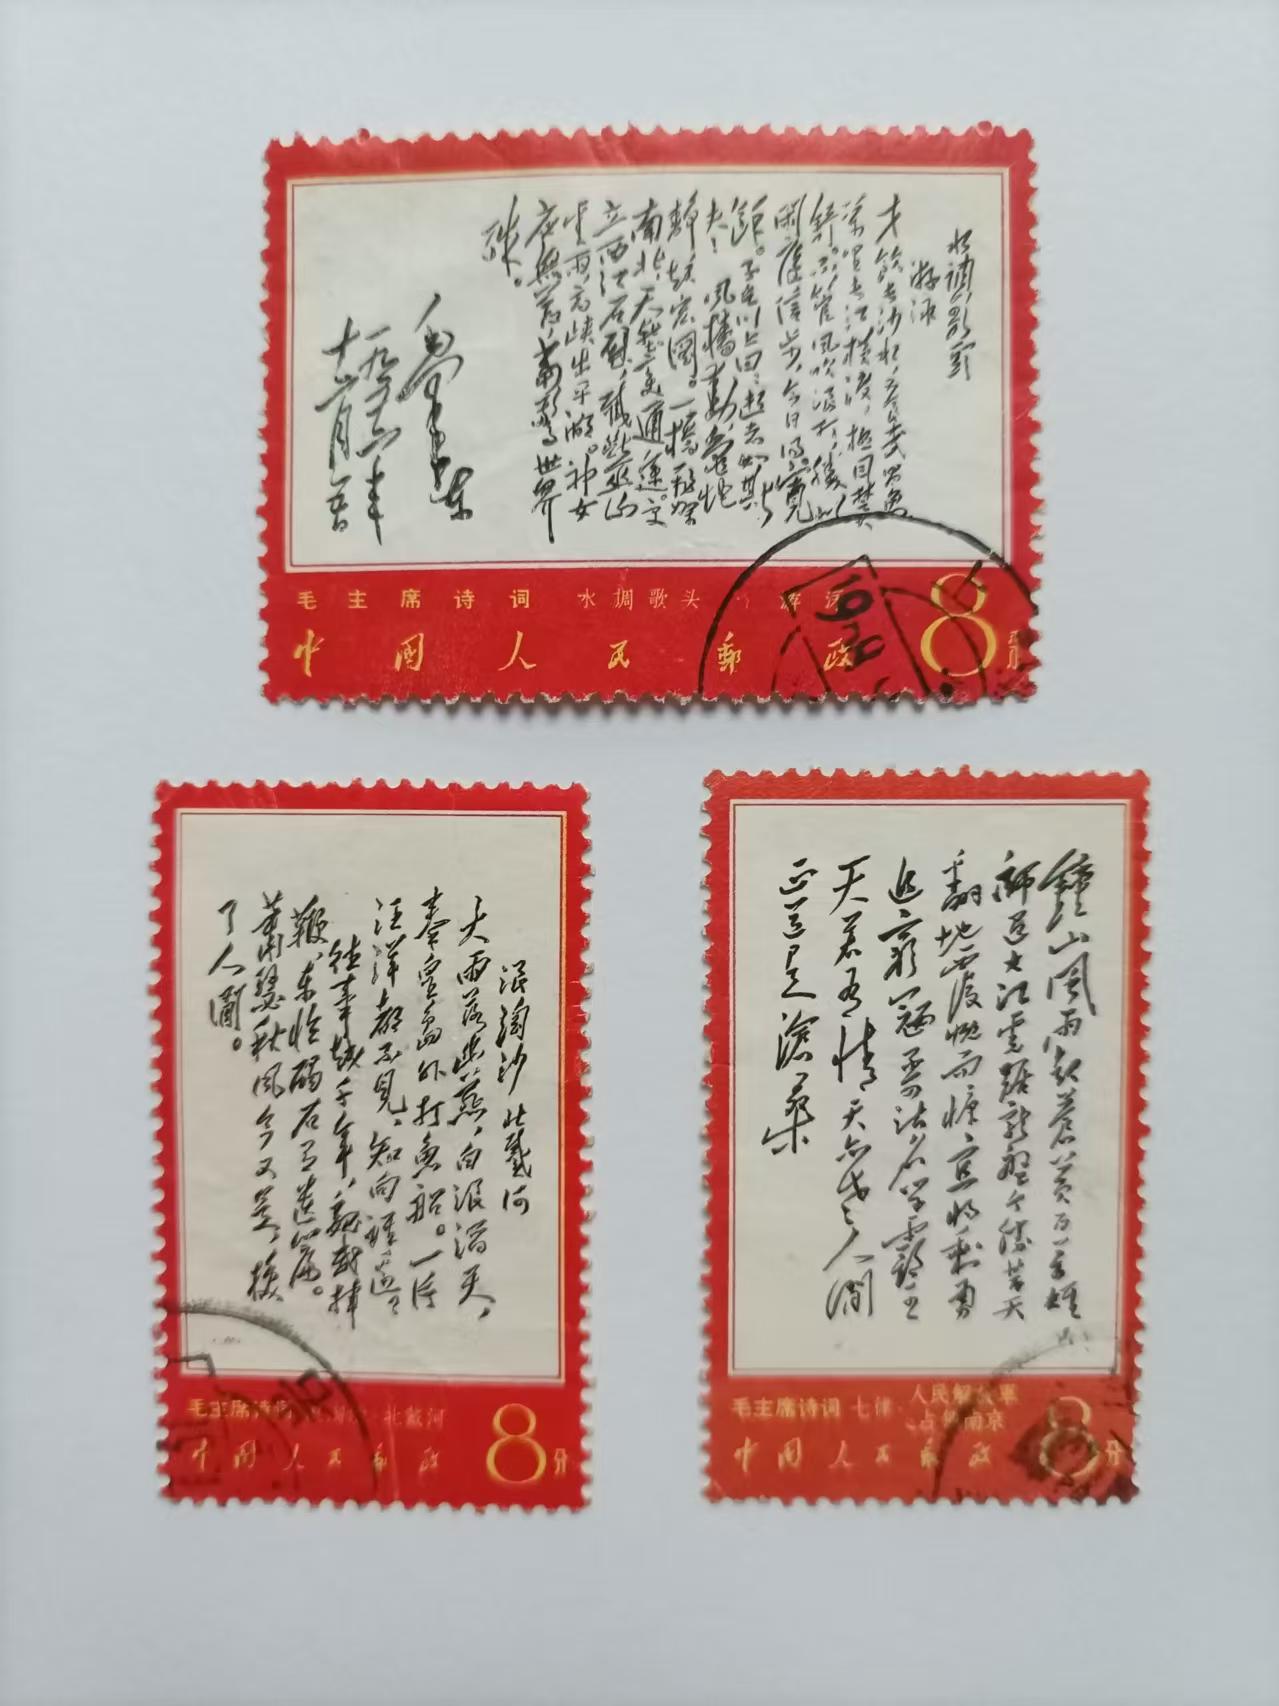 水调歌头
游泳
才饮长沙水，又食武昌鱼。
万里长江横渡，极目楚天
舒。不管风吹浪打，胜似
闲庭信步，今日得宽
馀。子在川上曰：逝者如斯
夫！风樯动，龟蛇
静，起宏图。一桥飞架
南北，天堑变通途。更
立西江石壁，截断巫山
云雨，高峡出平湖。神女
应無恙，当惊世界
殊。
毛泽东
一九五六年
十二月五日
毛主席诗词 水调歌头·游泳
中国人民邮政 8分
浪淘沙 北戴河
大雨落幽燕，白浪滔天，
秦皇岛外打鱼船。一片
汪洋都不见，知向谁边？
往事越千年，魏武挥
鞭，东临碣石有遗篇。
萧瑟秋风今又是，换
了人间。
毛主席诗词 ·北戴河
中国人民邮政 8分
鐘山風雨起蒼黄百万雄
師过大江虎踞龍盤今胜昔天
翻地覆慨而慷宜将剩勇
追窮寇不可沽名学霸王
天若有情天亦老人间
正道是滄桑
毛主席诗词 七律·人民解放军
占领南京
中国人民邮政 8分